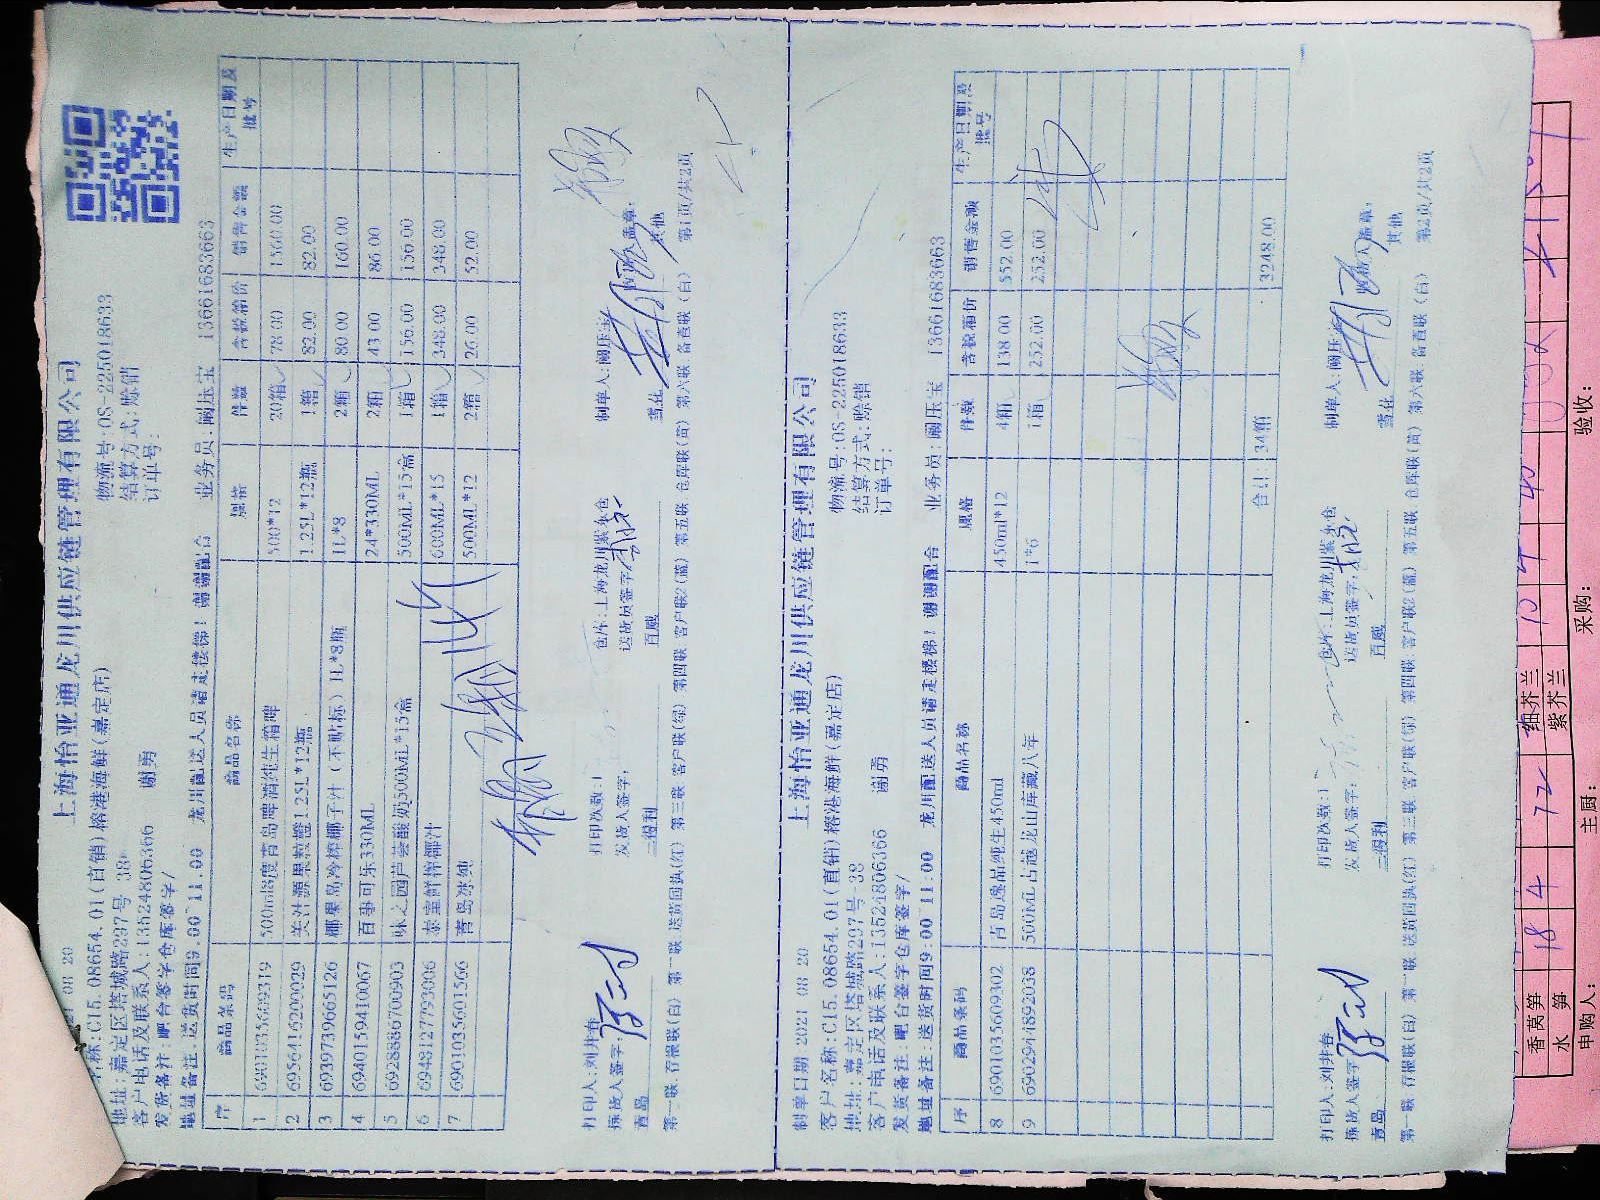 上海怡亚通龙川供应链管理有限公司
物流号:OS-225018633
名称:C15.08654.01(直销)榕港海鲜(嘉定店)
结算方式:赊销
地址:嘉定区塔城路297号-38
订单号:
客户电话及联系人:13524806366 谢勇
发货备注:吧台签字仓库签字/
地址备注:送货时间9:00~11:00 龙川配送人员请走楼梯!谢谢配合 业务员:阚压宝 13661683663
序 商品条码 商品名称 规格 件数 含税箱价 销售金额 生产日期及批号
1 500ml8度青岛啤酒纯生箱啤 500*12 20箱 78.00 1560.00
2 6956416200029 美汁源果粒橙1.25L*12瓶 1.25L*12瓶 1箱 82.00 82.00
3 6939739665126 椰果岛冷榨椰子汁(不贴标)1L*8瓶 1L*8 2箱 80.00 160.00
4 6940159410067 百事可乐330ML 24*330ML 2箱 43.00 86.00
5 6928886700903 味之园芦荟酸奶500ML*15盒 500ML*15盒 1箱 156.00 156.00
6 6948127793006 泰室鲜榨椰汁 600ML*15 1箱 348.00 348.00
7 6901035601566 青岛冰纯 500ML*12 2箱 26.00 52.00
打印人:刘井春 打印次数:1 仓库:上海龙川紫东仓 制单人:阚压宝
拣货人签字: 发货人签字: 送货员签字: 收货人盖章:
青岛 三得利 百威 雪花 其他
第一联 存根联(白) 第二联 送货回执(红) 第三联 客户联(绿) 第四联 客户联2(蓝) 第五联 仓库联(黄) 第六联 备查联(白) 第1页/共2页
上海怡亚通龙川供应链管理有限公司
制单日期 2021 08 20 物流号:OS-225018633
客户名称:C15.08654.01(直销)榕港海鲜(嘉定店) 结算方式:赊销
地址:嘉定区塔城路297号-38 订单号:
客户电话及联系人:13524806366 谢勇
发货备注:吧台签字仓库签字/
地址备注:送货时间9:00~11:00 龙川配送人员请走楼梯!谢谢配合 业务员:阚压宝 13661683663
序 商品条码 商品名称 规格 件数 含税箱价 销售金额 生产日期及批号
8 6901035609302 青岛逸品纯生450ml 450ml*12 4箱 138.00 552.00
9 690294892038 500ML古越龙山库藏八年 1*6 1箱 252.00 252.00
合计: 34箱 3248.00
打印人:刘井春 打印次数:1 仓库:上海龙川紫东仓 制单人:阚压宝
拣货人签字: 发货人签字: 送货员签字: 收货人盖章:
青岛 三得利 百威 雪花 其他
第一联 存根联(白) 第二联 送货回执(红) 第三联 客户联(绿) 第四联 客户联2(蓝) 第五联 仓库联(黄) 第六联 备查联(白) 第2页/共2页
香莴笋 18 72 细芥兰 10 40
水 笋 4 紫芥兰 4
申购人: 主厨: 采购: 验收: